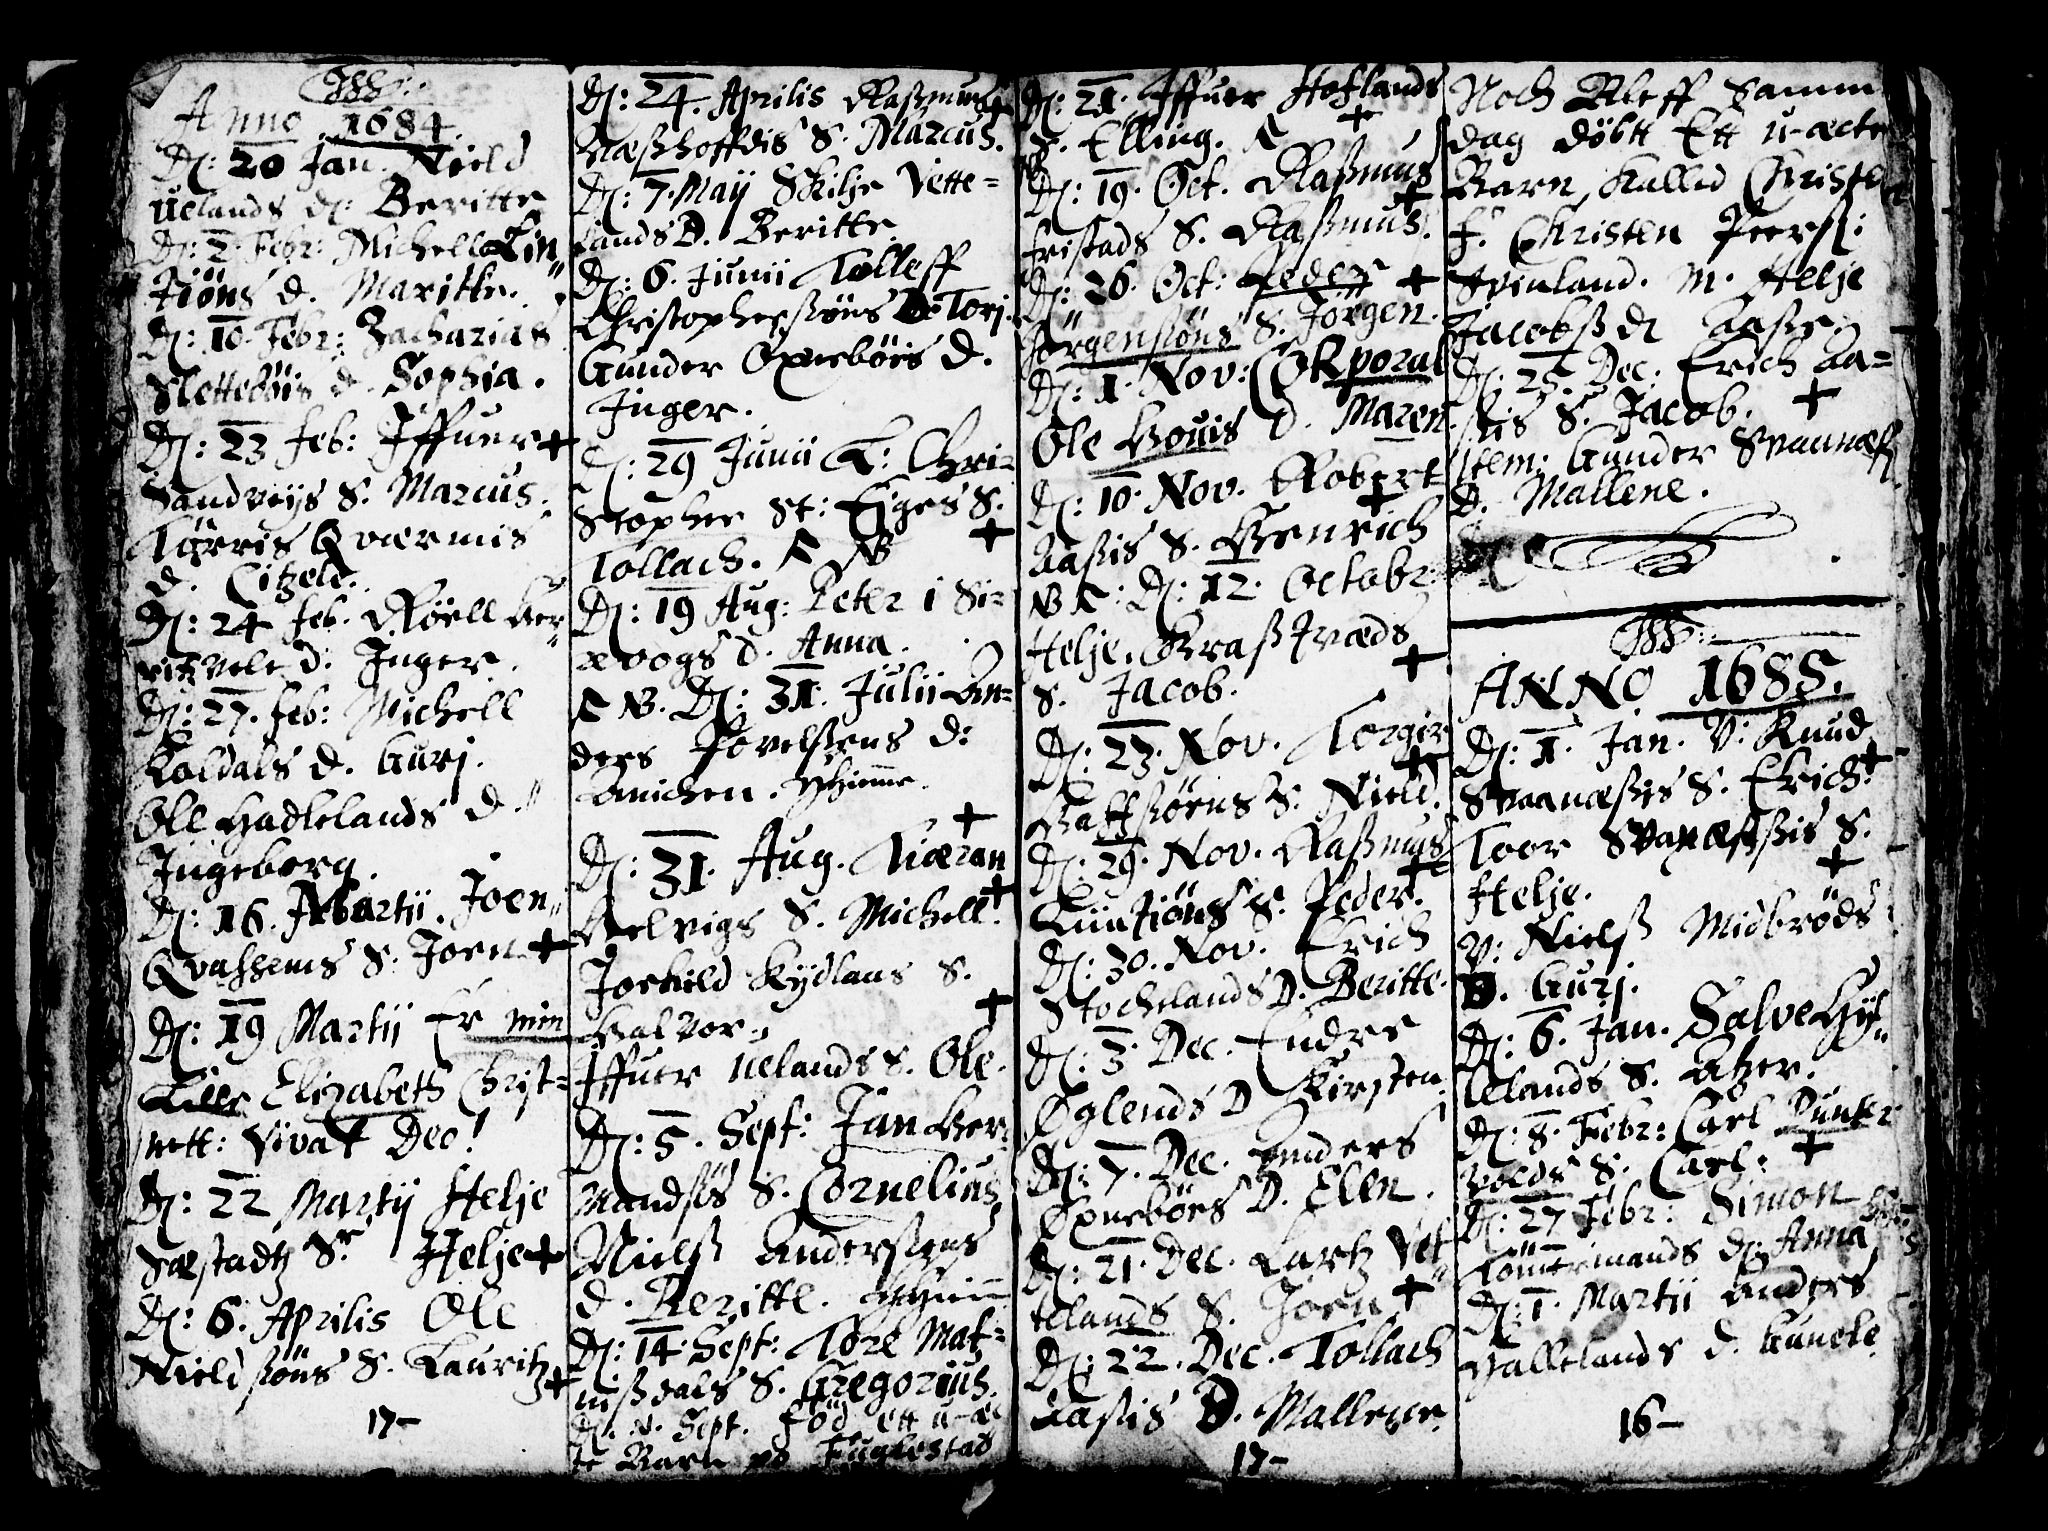 Anno 1684.
D: 20 Jan. Nield
Uelands d: Beritte
D: 2. Febr: Michell Lin„
tiöns d. Maritte.
D: 10. Febr: Zacharias
Sletteböis d. Sophia.
D: 23 feb: Iffuer +
Sandviigs S. Marcus.
Törris Qværmis
d. Citzele.
D: 24 feb. Roell Ber„
ritzvele d. Inger.
D: 27. feb: Michell
Koldals d. Gurj.
Ole Hadlelands d.
Ingeborg.
D: 16. Martii. Joen„
Qvassems S. Joen +
D: 19 Martij Er min
Lille Elizabeth Christ=
nett: Vivat Deo!
D: 22 Martij Helje
Sæstadtz Sr Helje +
D: 6. Aprilis Ole
Nieldsöns S. Lauritz +
17-
D: 24. Aprilis Rasmus +
Næshoffdis S. Marcus.
D: 7. Maij Skilje Vette=
lands D. Beritte
D: 6. Junii Tolleff
Christophersöns D. Torj.
Gunder Oxneböis d.
Inger.
D: 29 Junii T: Chri-
Stopher St: Eiges S. +
Tollach. NB
D: 19 Aug: Peter i Si-
revogs d. Anna.
NB. D: 31. Julii An-
ders Povelsens d:
Anichen.
+
D: 31. Aug. Tiæran +
Helvigs S. Michell.
Jorkield Kydlans S. +
Halvor.
Iffuer Uelands S. Ole.
D: 5. Sept: Jan Her-
mandsös S. Cornelius
Niels Andersens
d. Beritte.
D: 14. Sept: Tore Mat-
nisdals S. Gregorius.
D. Sept. Föd ett u-æc
te Barn på Fuglestad
D: 21. Iffuer Hoflands +
S. Elling.
NB
D: 19. Oct. Rasmus +
fristads S. Rasmus.
D: 26. Oct: Peder +
Jörgensöns S. Jörgen.
D: 1. Nov: Corporal
Ole Bouis d. Maren
D: 10. Nov. Robert +
Aasis S. Henrich
NB: D: 12. Octobr:
Helje. Græstvæds +
S. Jacob.
D: 23. Nov. Torgir +
Haftsörns S. Nield.
D: 29. Nov. Rasmus +
Liintiöns S. Peder.
D: 30. Nov. Erich
Stochelands D. Beritte.
D: 3. Dec. Endre
Öglends D Kirsten.
D: 7. Dec. Anders
Oxneböes D. Elen.
D: 21. Dec. Lartz Vet„
telands S. Joen +
D: 22. Dec. Tollach
Aasis D. Mallene
17-
Noch Bleff Samm
dag döbtt Ett u-ecte
Barn kalled Christe
f. Christen Peers:
Svinland. M. Helje
Jacobs d Aase.
D: 25. Dec: Erich Aa=
sis S. Jacob. +
Item: Gunder Svaanæs
D. Mallene.
ANNO 1685.
D: 1. Jan. V: Knud +
Svaanæsis S. Erich.
Toor Svanæssis S. +
Helje.
V: Niels Midbröds
D. Gurj.
D: 6. Jan. Salve Hy„
lelands S. Atzer.
D: 8. Febr: Carl Dunker
volds S. Carl. +
D: 27 Febr: Simon
Tömermands d: Anna
D: 1. Martii Anders
Hallelands d. Gunele
16-